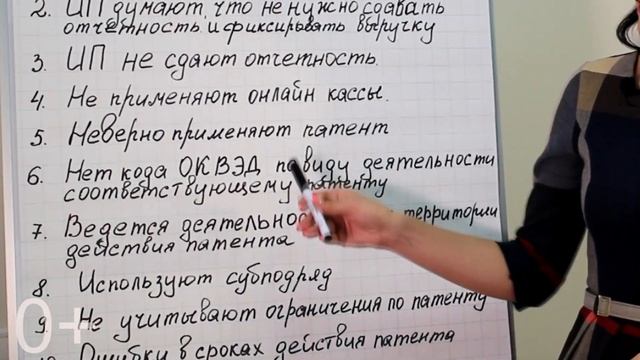 2. ИП думают, что не нужно сдавать
отчетность и фиксировать выручку
3. ИП не сдают отчетность.
4. Не применяют онлайн кассы.
5. Неверно применяют патент
6. Нет кода ОКВЭД по виду деятельности
соответствующему патенту
7. Ведется территории
действия патента
8. Используют субподряд
9. Не учитывают ограничения по патенту
Ошибки в сроках действия патента
0+